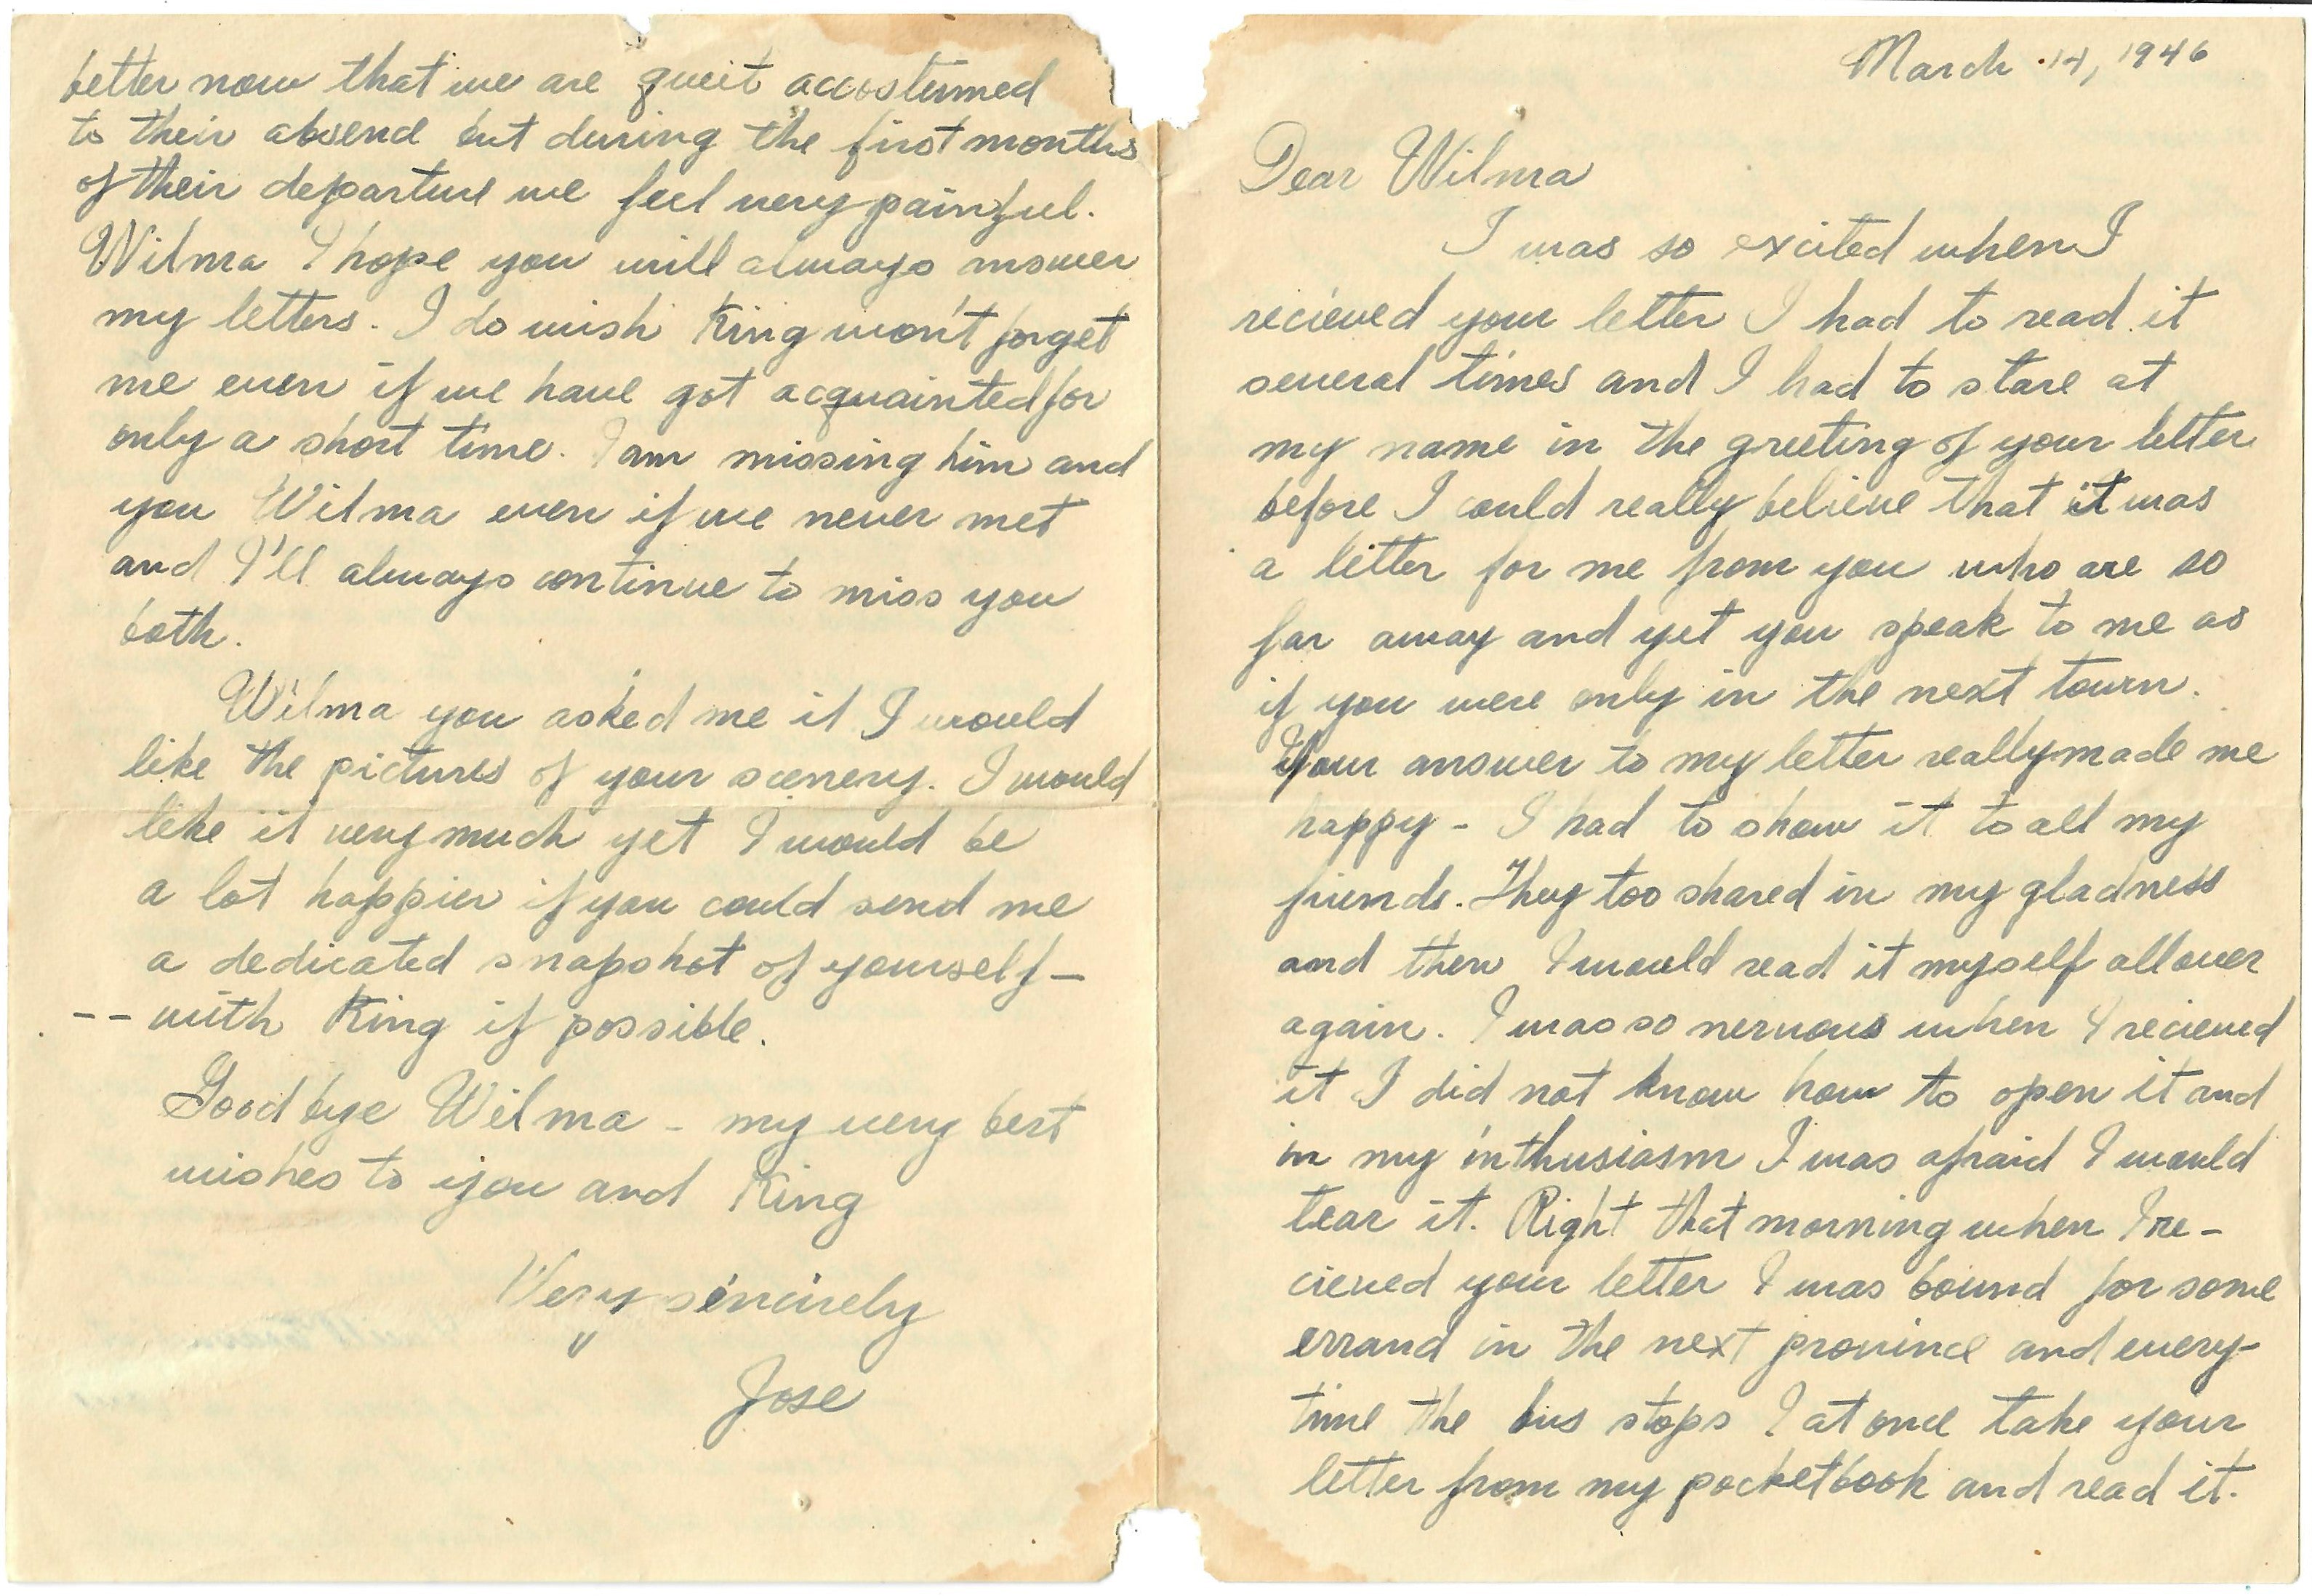 March 14, 1946
Dear Wilma
I was so excited when I
recieved your letter I had to read it
several times and I had to stare at
my name in the greeting of your letter
before I could really believe that it was
a letter for me from you who are so
far away and yet you speak to me as
if you were only in the next town.
Your answer to my letter really made me
happy - I had to show it to all my
friends. They too shared in my gladness
and then I would read it myself all over
again. I was so nervous when I recieved
it I did not know how to open it and
in my inthusiasm I was afraid I would
tear it. Right that morning when I re-
cieved your letter I was bound for some
errand in the next province and every-
time the bus stops I at once take your
letter from my pocketbook and read it.
better now that we are queit accostumed
to their absend but during the first months
of their departure we feel very painful.
Wilma I hope you will always answer
my letters. I do wish King won't forget
me even if we have got acquainted for
only a short time. I am missing him and
you Wilma even if we never met
and I'll always continue to miss you
both.
Wilma you asked me if I would
like the pictures of your scenery. I would
like it very much yet I would be
a lot happier if you could send me
a dedicated snapshot of yourself -
-- with King if possible.
Good bye Wilma - my very best
wishes to you and King
Very sincirely
"
Jose